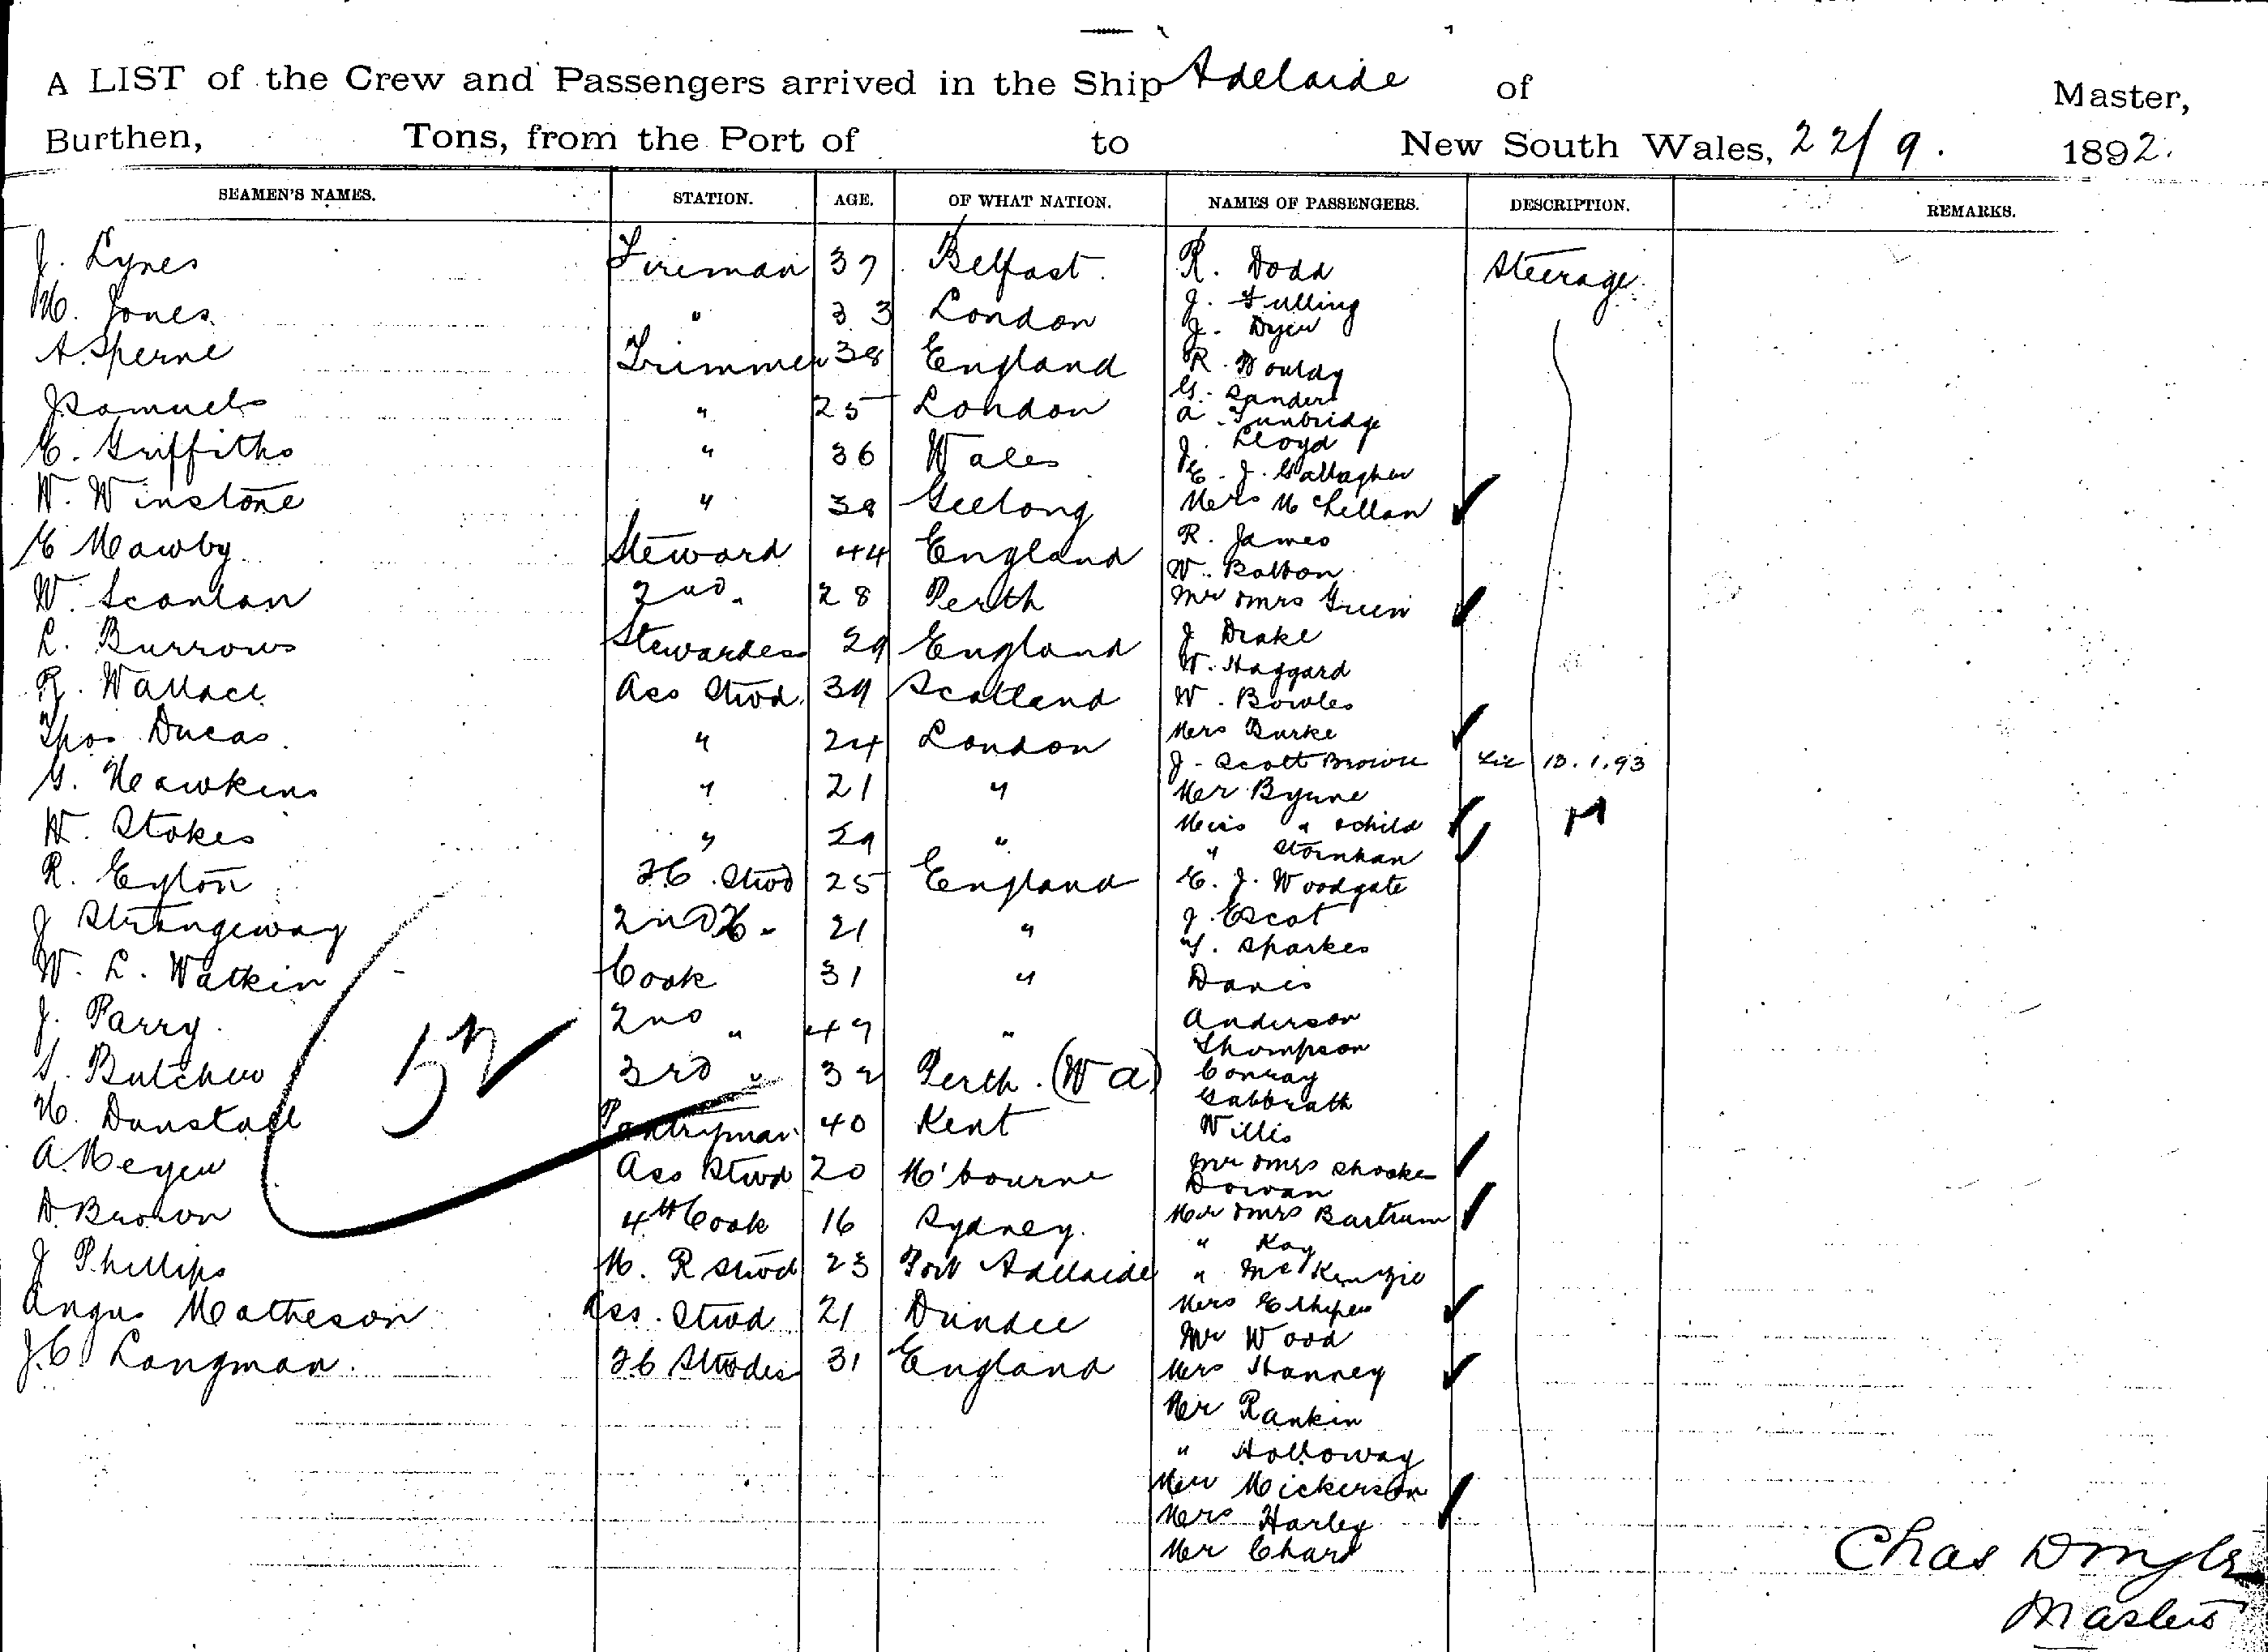 A LIST of the Crew and Passengers arrived in the Ship Adelaide of Master,
Burthen, Tons, from the Port of to New South Wales, 22/9. 1892.
SEAMEN'S NAMES. STATION. AGE. OF WHAT NATION. NAMES OF PASSENGERS. DESCRIPTION. REMARKS.
J. Lynes Fireman 37 Belfast. R. Dodd Steerage
H. Jones " 33 London J. Fulling
J. Dyer
A. Sperne Trimmer 38 England R. Wouldy
J Samuels " 25 London G. Sanders
A. Tunbridge
E. Griffiths " 36 Wales J. Lloyd
E. J. Gallagher
W. Winstone " 38 Geelong Mrs McLellan ✓
E Mawby Steward 44 England R. James
W. Bolton
W. Scanlan 2nd " 28 Perth Mr & Mrs Green ✓
L. Burrows Stewardess 29 England J Drake
W. Haggard
R. Wallace Ass Stwd. 39 Scotland W. Bowles
Thos Ducas. " 24 London Mrs Burke ✓
J. Scott Brown 13.1.93
G. Hawkins " 21 " Mr Byrne
W. Stokes " 29 " Miss " & child ✓
" Stornhan ✓
R. Eyton F.C. Stwd 25 England E. J. Woodgate
J Strangeway 2nd " 21 " J. Escot
T. Sparkes
W. L. Watkin Cook 31 " Davis
J. Parry. 2nd " 47 " Anderson
Thompson
S. Butcher 3rd " 32 Perth. (W A) Conray
Galbraith
H. Dunstall Pantryman 40 Kent Willis
A. Meyer Ass Stwd 20 M'bourne Mr & Mrs Shooke ✓
Dorvan
D. Brown 4th Cook 16 Sydney. Mr & Mrs Bartrum ✓
" Kay
J Phillips M. R Stwd 23 Port Adelaide " McKenzie
Angus Matheson Ass. Stwd 21 Dundee Mrs E Shipew ✓
Mr Wood
J. C. Langman. F.C. Stwdes 31 England Mrs Hanney ✓
Mr Rankin
" Holloway
Mr Mickerson
Mrs Harley ✓
Mr Chard
52
Chas Dingle
Master